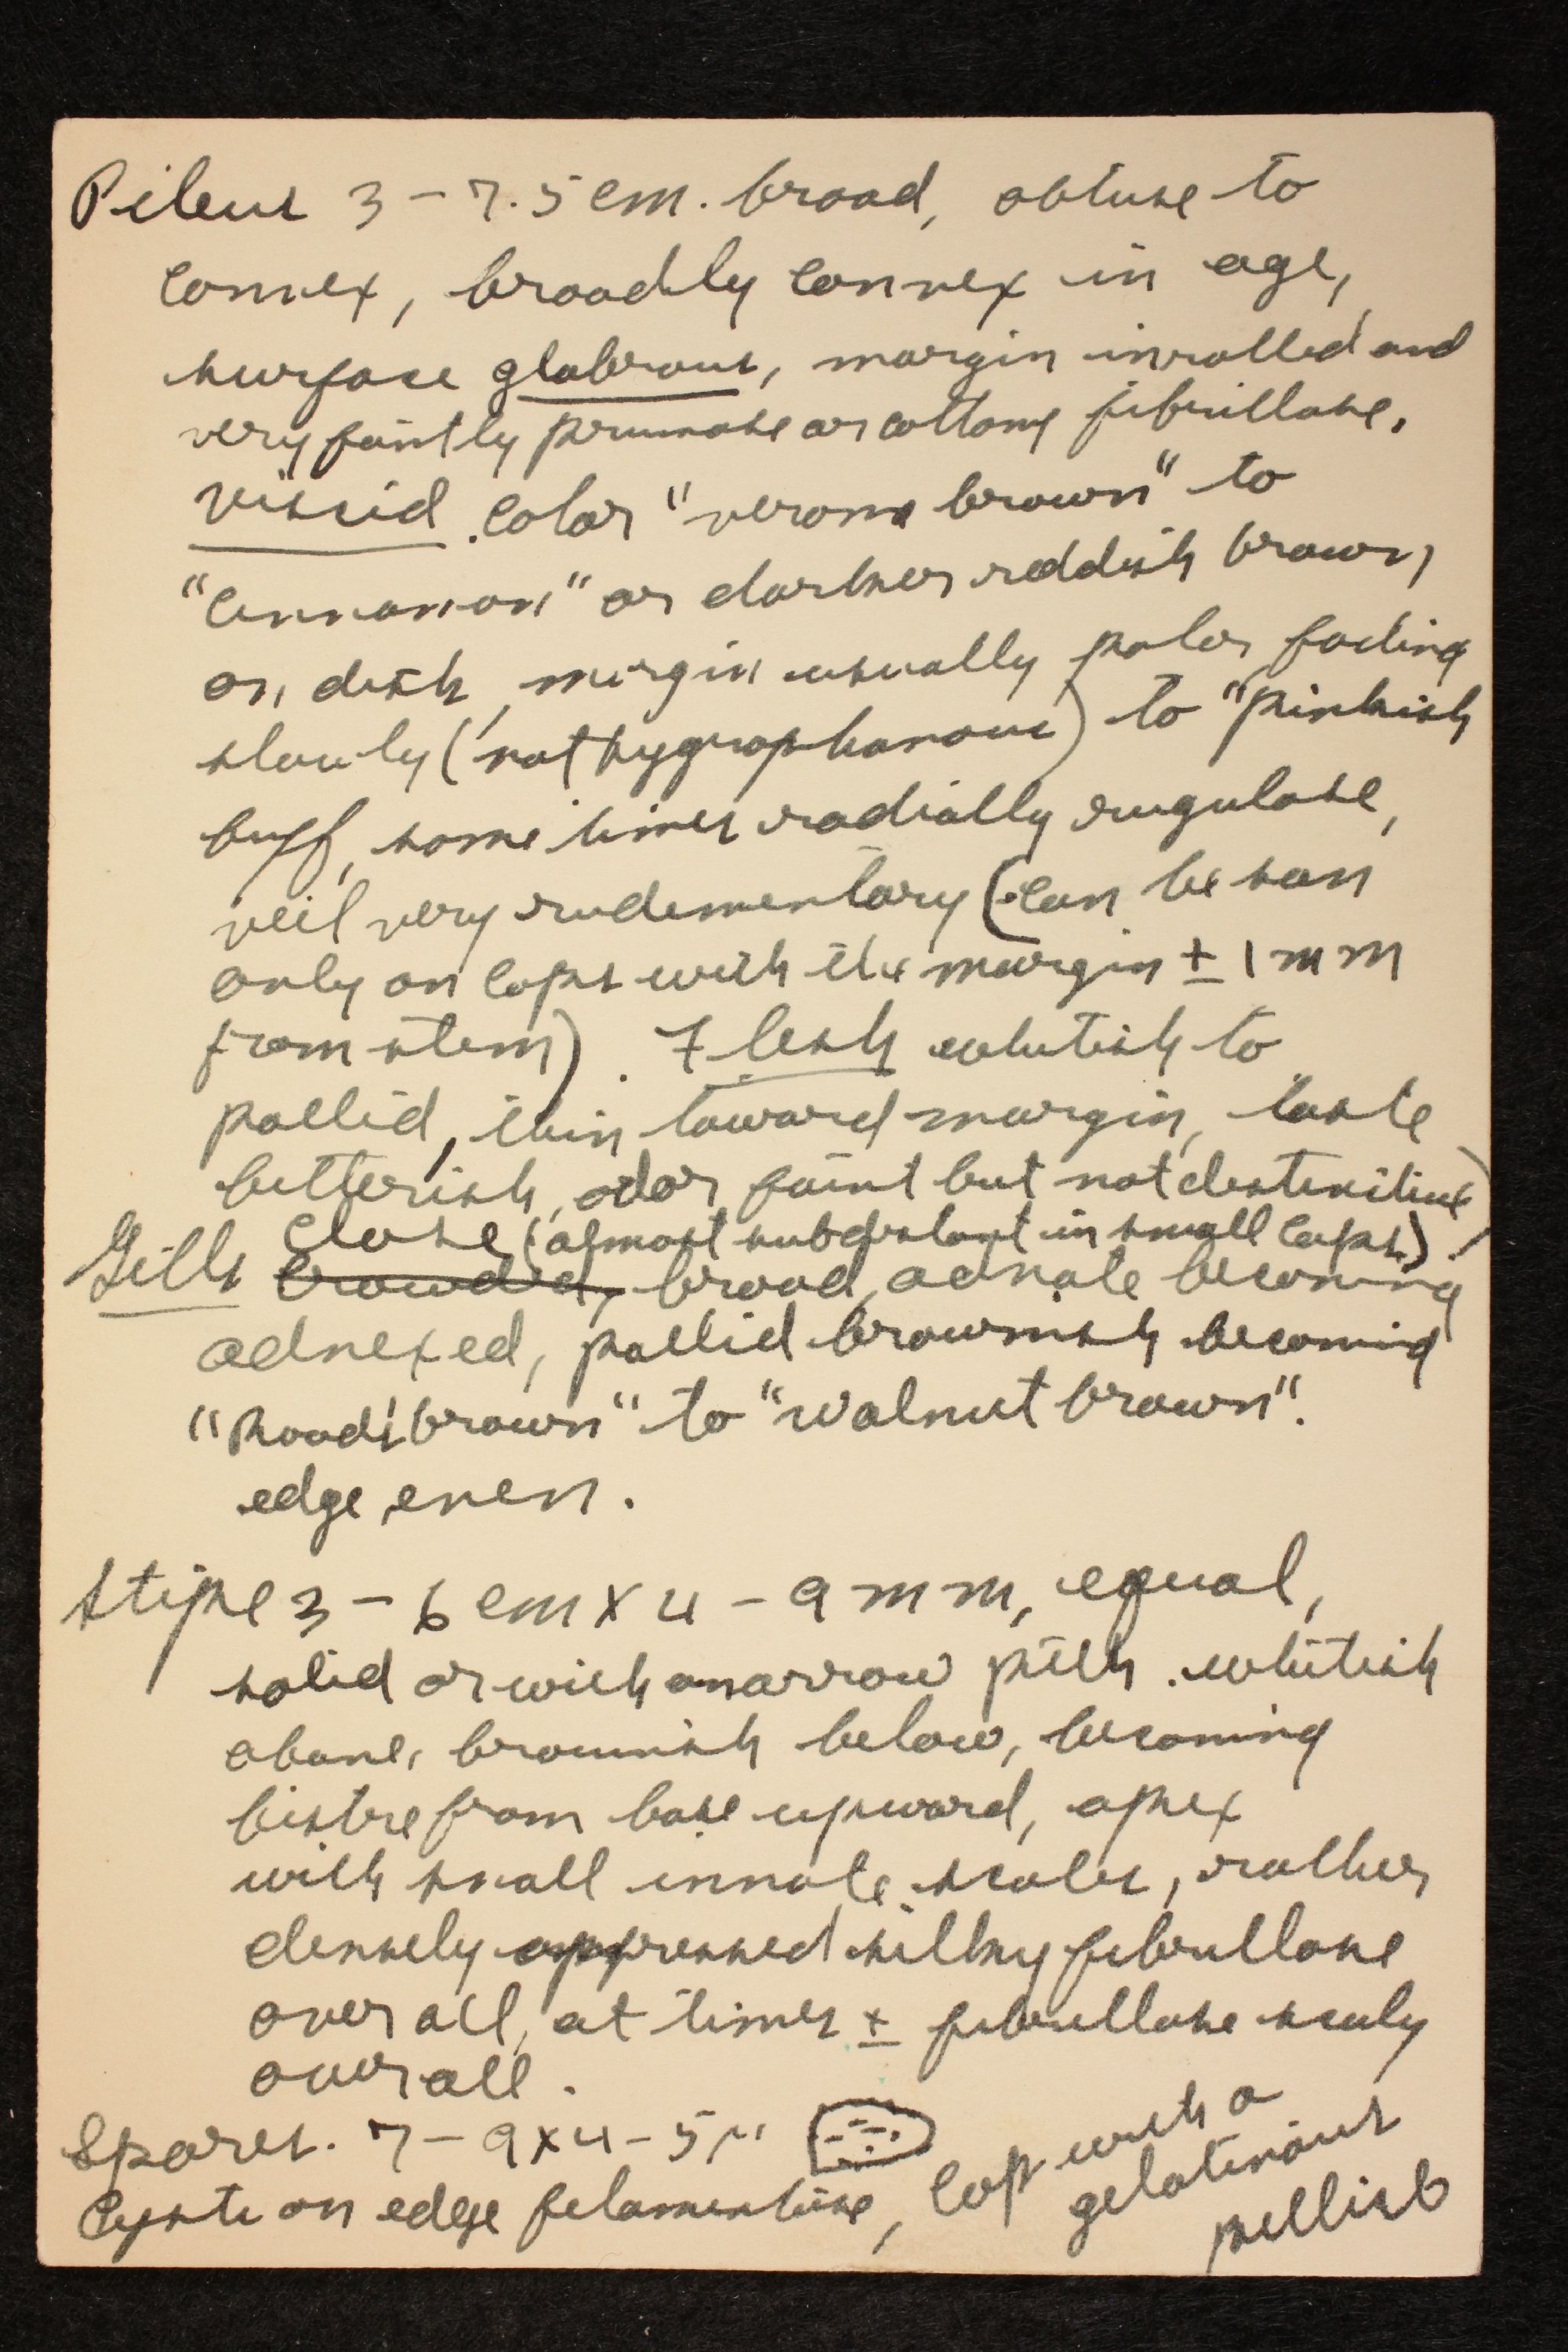 Pileus 3 - 7.5 cm. broad, obtuse to
convex, broadly convex in age,
surface glabrous, margin inrolled and
very faintly pruinose or cottony fibrillose,
viscid. Color "verona brown" to
"cinnamon" or darker reddish brown
on disk, margin usually paler fading
slowly (not hygrophanous) to "pinkish
buff, sometimes radially rugulose,
veil very rudementary (can be seen
only on caps with the margin ± 1 mm
from stem). Flesh whitish to
pallid, thin toward margin, taste
bitterish, odor faint but not distinctive)
close (almost subdistant in small caps).
Gills crowded, broad, adnate becoming
adnexed, pallid brownish becoming
"Rood's brown" to "walnut brown".
edge even.
Stipe 3 - 6 cm x 4 - 9 mm, equal,
solid or with a narrow pith. whitish
above, brownish below, becoming
bistre from base upward, apex
with small innate scales, rather
densely appressed silky fibrillose
over all, at times ± fibrillose scaly
over all.
Spores. 7 - 9 x 4 - 5 µ
Cysti on edge filamentose, Cap with a
gelatinous
pellicle